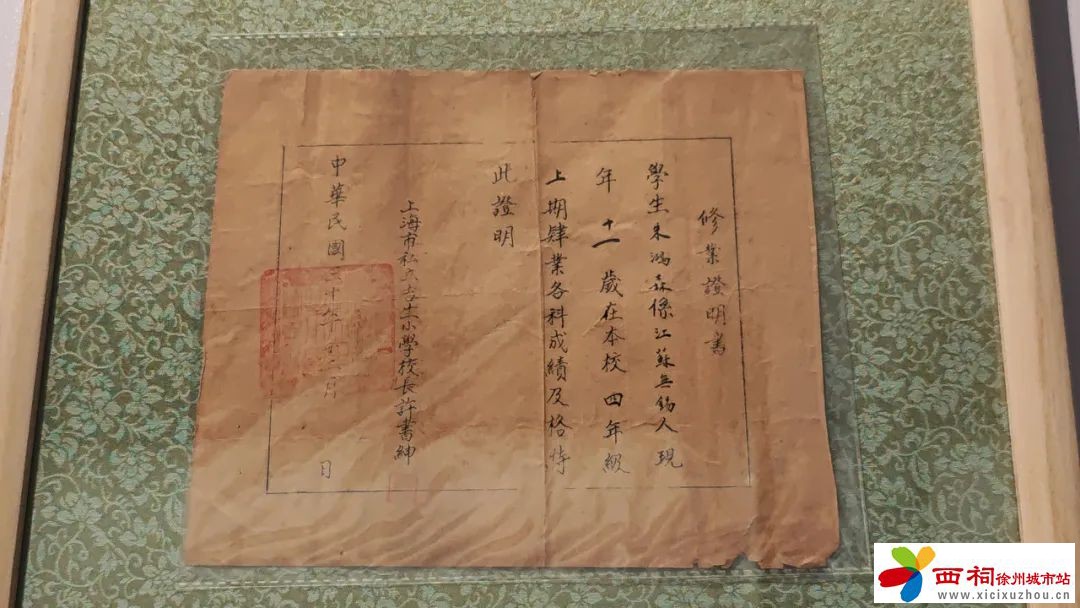 修業證明書
學生朱鴻森係江蘇無錫人現
年十一歲在本校四年級
上期肄業各科成績及格特
此證明
上海市私立吉生小學校長許書紳
中華民國三十 月
日
西祠徐州城市站
www.xicixuzhou.cn